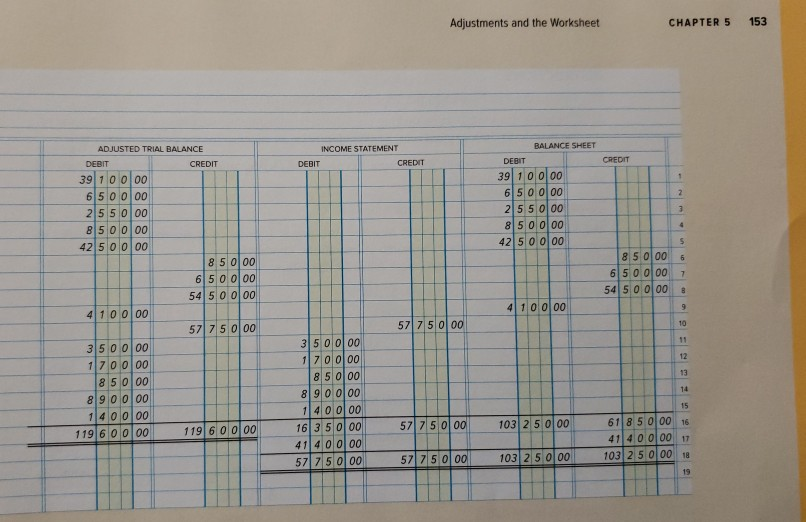 Adjustments and the Worksheet CHAPTER 5 153
ADJUSTED TRIAL BALANCE INCOME STATEMENT BALANCE SHEET
DEBIT CREDIT DEBIT CREDIT DEBIT CREDIT
39 100 00 39 100 00 1
6 500 00 6 500 00 2
2 550 00 2 550 00 3
8 500 00 8 500 00 4
42 500 00 42 500 00 5
850 00 850 00 6
6 500 00 6 500 00 7
54 500 00 54 500 00 8
4 100 00 4 100 00 9
57 750 00 57 750 00 10
3 500 00 3 500 00 11
1 700 00 1 700 00 12
850 00 850 00 13
8 900 00 8 900 00 14
1 400 00 1 400 00 15
119 600 00 119 600 00 16 350 00 57 750 00 103 250 00 61 850 00 16
41 400 00 41 400 00 17
57 750 00 57 750 00 103 250 00 103 250 00 18
19